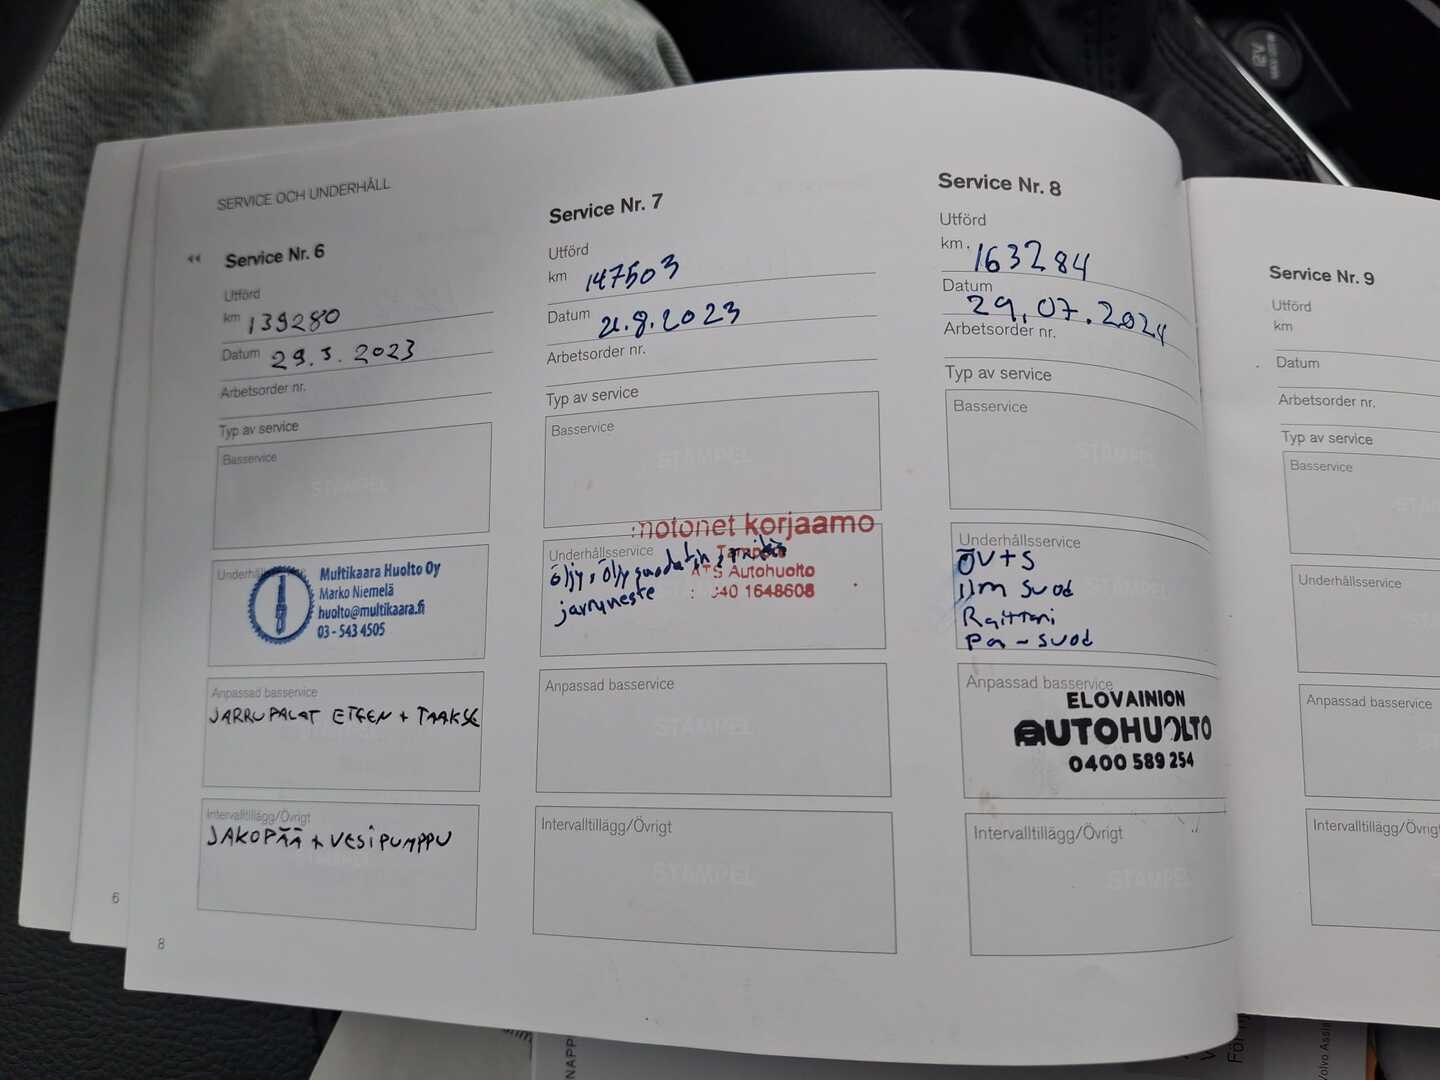 SERVICE OCH UNDERHÅLL
Service Nr. 6
Utförd
km 139280
Datum 29.5.2023
Arbetsorder nr.
Typ av service
Basservice
STÄMPEL
Multikaara Huolto Oy
Marko Niemelä
huolto@multikaara.fi
03 - 543 4505
Anpassad basservice
JARRUPALAT ETEEN + TAAKSE
Intervalltillägg/Övrigt
JAKOPÄÄ + VESIPUMPPU
6
8
Service Nr. 7
Utförd
km 147503
Datum 21.8.2023
Arbetsorder nr.
Typ av service
Basservice
STÄMPEL
motonet korjaamo
Underhållsservice
öljy, öljysuodatin,
ATS Autohuolto
jarruneste
040 1648608
Anpassad basservice
STÄMPEL
Intervalltillägg/Övrigt
STÄMPEL
Service Nr. 8
Utförd
km. 163284
Datum
29.07.2024
Arbetsorder nr.
Typ av service
Basservice
STÄMPEL
Underhållsservice
ÖV+S
ilm suod
Raittari
Pa-suod
Anpassad basservice
ELOVAINION
AUTOHUOLTO
0400 589 254
Intervalltillägg/Övrigt
STÄMPEL
Service Nr. 9
Utförd
km
Datum
Arbetsorder nr.
Typ av service
Basservice
Underhållsservice
Anpassad basservice
Intervalltillägg/Övrig
12V